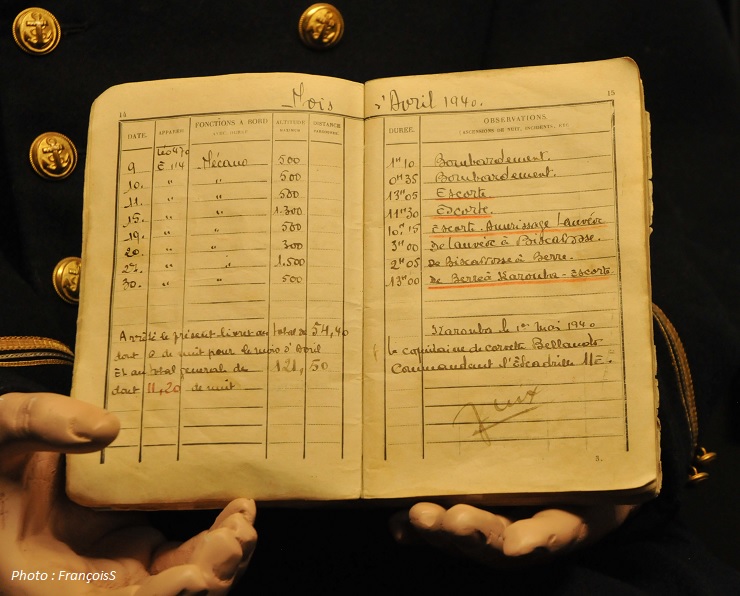 Mois d'Avril 1940.
14
15
DATE. APPAREIL FONCTIONS A BORD ALTITUDE DISTANCE DURÉE. OBSERVATIONS
(ASCENSIONS DE NUIT, INCIDENTS, ETC.
9 E 114 Mécano 500 1H10 Bombardement.
10. " " 500 0H35 Bombardement.
11. " " 500 13H05 Escorte
15. " " 1.300 11H30 Escorte.
19. " " 500 10H15 Escorte. Amerissage Lanvéoc
20. " " 300 3H00 De Lanvéoc à Biscarosse.
27. " " 1.500 2H05 De Biscarosse à Berre.
30. " " 500 13H00 De Berre à Karouba - Escorte.
Arrêté le present livret au total de 54,40
dont 0 de nuit pour le mois d'Avril
Et au total general de 121,50
dont 11,20 de nuit
Karouba le 1er Mai 1940
Le capitaine de corvette
Commandant l'Escadrille
3.
Photo : FrançoisS